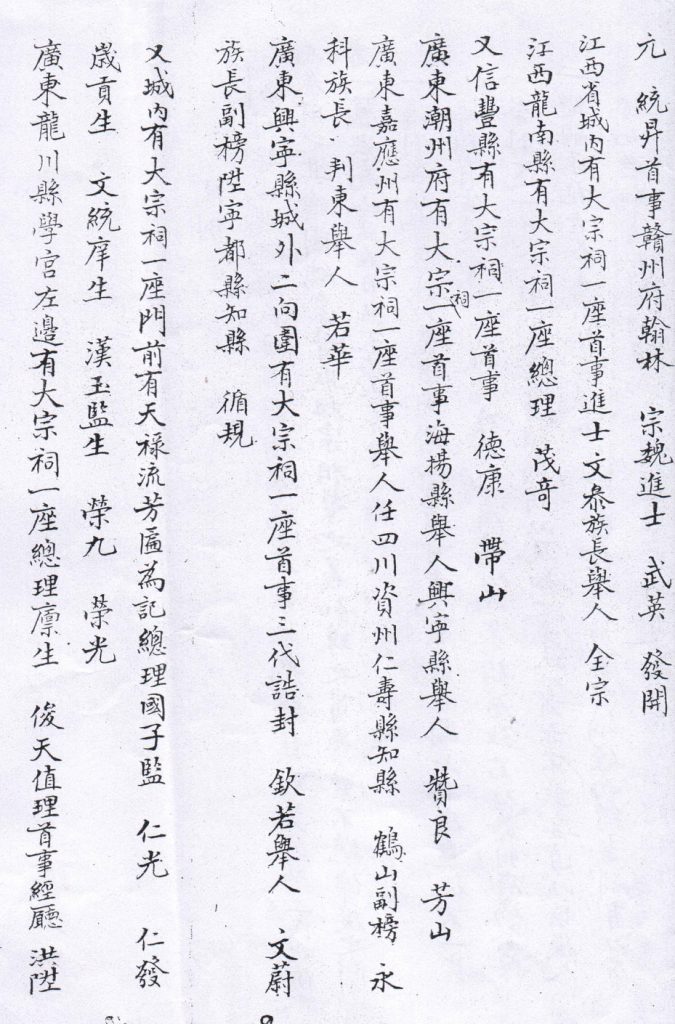 元　統昇首事贛州府翰林　宗魏進士　武英　發開
江西省城內有大宗祠一座首事進士文叅族長舉人　全宗
江西龍南縣有大宗祠一座總理　茂奇
又信豐縣有大宗祠一座首事　德康　帶山
廣東潮州府有大宗祠一座首事海揚縣舉人興寧縣舉人　贊良　芳山
廣東嘉應州有大宗祠一座首事舉人任四川資州仁壽縣知縣　鶴山副榜　永
科族長．判東舉人　若華
廣東興寧縣城外二向圍有大宗祠一座首事三代誥封　欽若舉人　文蔚
族長副榜陞寧都縣知縣　循規
又城內有大宗祠一座門前有天祿流芳匾為記總理國子監　仁光　仁發
歲貢生　文統庠生　漢玉監生　榮九　榮光
廣東龍川縣學宮左邊有大宗祠一座總理廩生　俊天值理首事經廳　洪陞